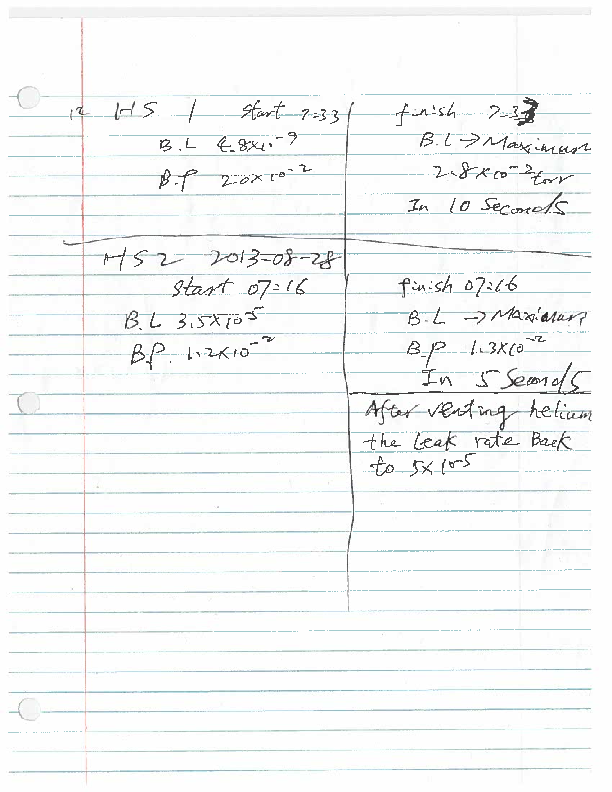 12 HS 1 Start 7:33
B.L 4.8x10-9
B.P 2.0x10-2
finish 7:33
B.L → Maximum
2.8x10-2 torr
In 10 Seconds
HS2 2013-08-28
Start 07:16
B.L 3.5x10-5
B.P. 1.2x10-2
finish 07:16
B.L → Maximum
B.P 1.3x10-2
In 5 Seconds
After venting helium
the leak rate Back
to 5x10-5